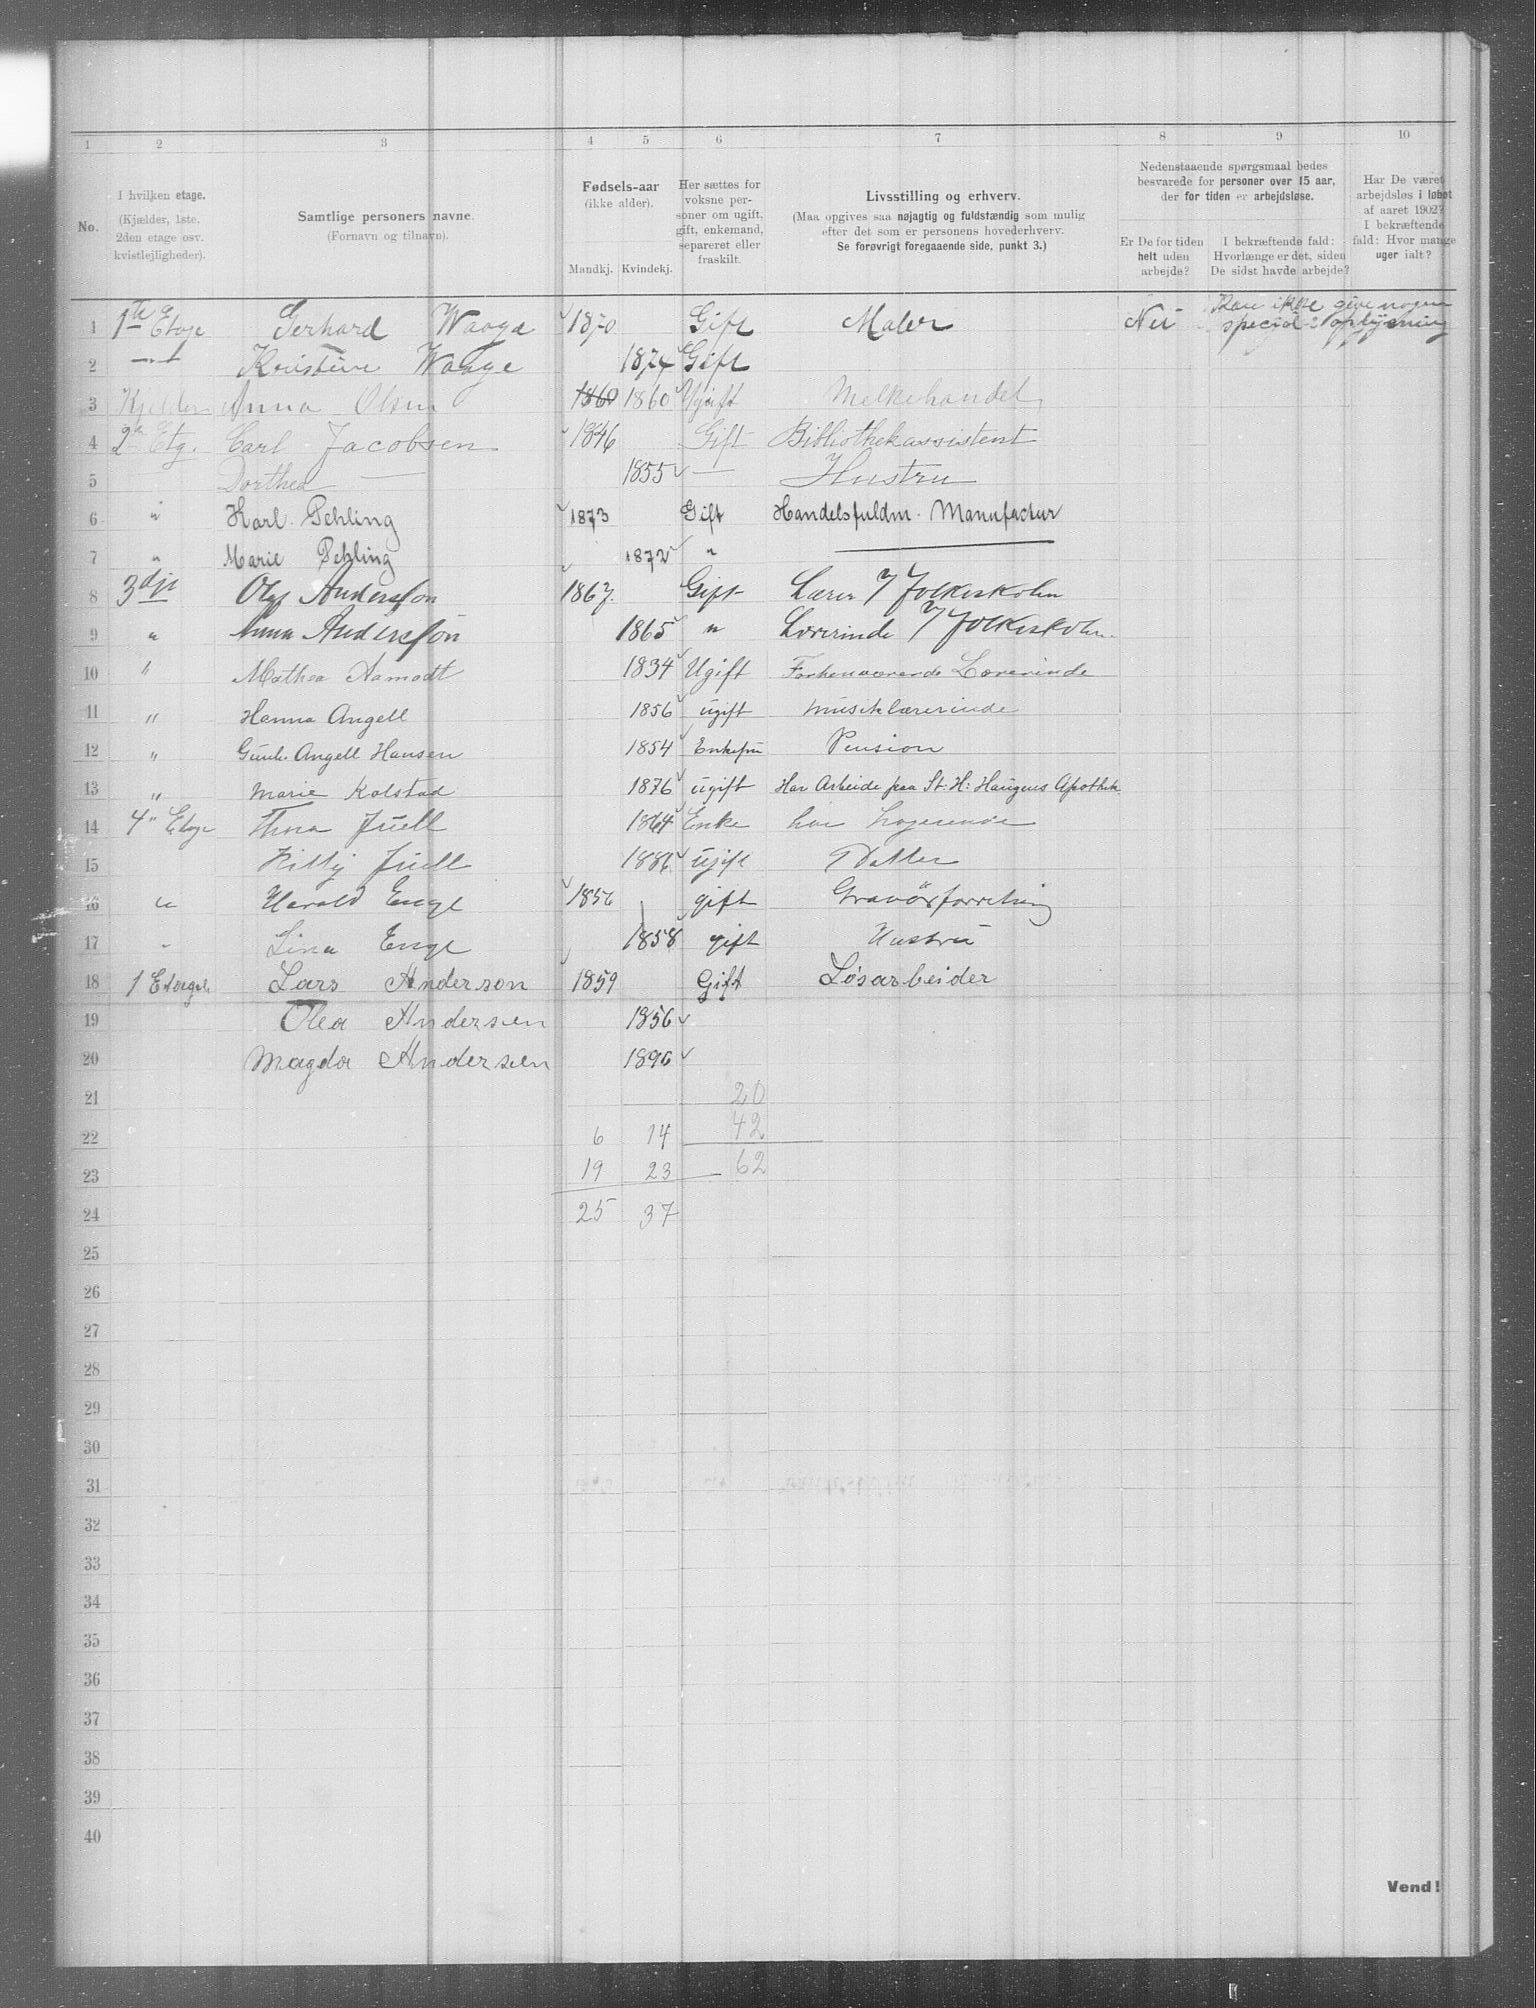 1 2 3 4 5 6 7 8 9 10
No.
I hvilken etage.
(Kjælder, 1ste,
2den etage osv.
kvistlejligheder).
Samtlige personers navne.
(Fornavn og tilnavn).
Fødsels-aar
(ikke alder).
Mandkj. Kvindekj.
Her sættes for
voksne per-
soner om ugift,
gift, enkemand,
separeret eller
fraskilt.
Livsstilling og erhverv.
(Maa opgives saa nøjagtig og fuldstændig som mulig
efter det som er personens hovederhverv.
Se forøvrigt foregaaende side, punkt 3.)
Nedenstaaende spørgsmaal bedes
besvarede for personer over 15 aar,
der for tiden er arbejdsløse.
Er De for tiden
helt uden
arbejde?
I bekræftende fald:
Hvorlænge er det, siden
De sidst havde arbejde?
Har De været
arbejdsløs i løbet
af aaret 1902?
I bekræftende
fald: Hvor mange
uger ialt?
1 1te Etage Gerhard Waage 1870 Gift Maler Nei Kan ikke give nogen special oplysning
2 —"— Kristine Waage 1874 Gift
3 Kjelder Anna Olsen 1860 1860 Ugift Melkehandel
4 2n Etg. Carl Jacobsen 1846 Gift Bibliothekassistent
5 Dorthea — 1855 — Hustru
6 " Karl Pehling 1873 Gift Handelsfuldm. Manufactur
7 " Marie Pehling 1872 " —
8 3dje Olaf Andersson 1867. Gift Lærer v/ Folkeskolen
9 " Anna Andersson 1865 " Lærerinde v/ Folkeskolen.
10 " Mathea Aamodt 1834 Ugift Forhenværende Lærerinde
11 " Hanna Angell 1856 ugift Musiklærerinde
12 " Gunh. Angell Hansen 1854 Enkefru Pension
13 " Marie Kolstad 1876 ugift Har Arbeide paa St: H: Haugens Apothek
14 4" Etage Thora Juell 1864 Enke har Logerende
15 Kitty Juell 1886 ugift Datter
16 " Harald Enge 1856 gift Gravörforretning
17 " Lina Enge 1858 gift Hustru
18 1 Etage Lars Anderson 1859 Gift Løsarbeider
19 Olea Andersen 1856
20 Magda Andersen 1896
21 20
22 6 14 42
23 19 23 62
24 25 37
25
26
27
28
29
30
31
32
33
34
35
36
37
38
39
40
Vend!